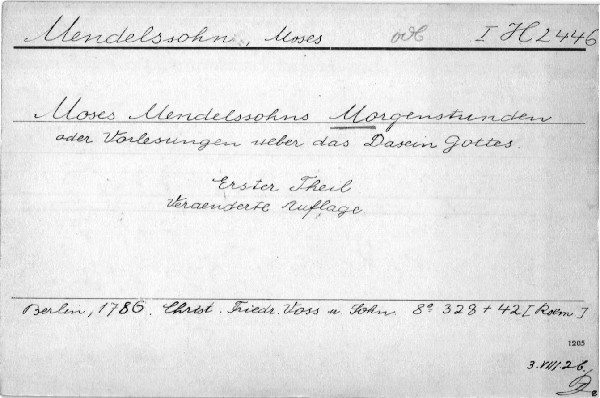 Mendelssohn, Moses I H 2446
Moses Mendelssohns Morgenstunden
oder Vorlesungen ueber das Dasein Gottes.
Erster Theil
Veraenderte Auflage.
Berlin, 1786. Christ. Friedr. Voss u. Sohn. 8° 328 + 42 [Roem]
1205
3.VIII.26.